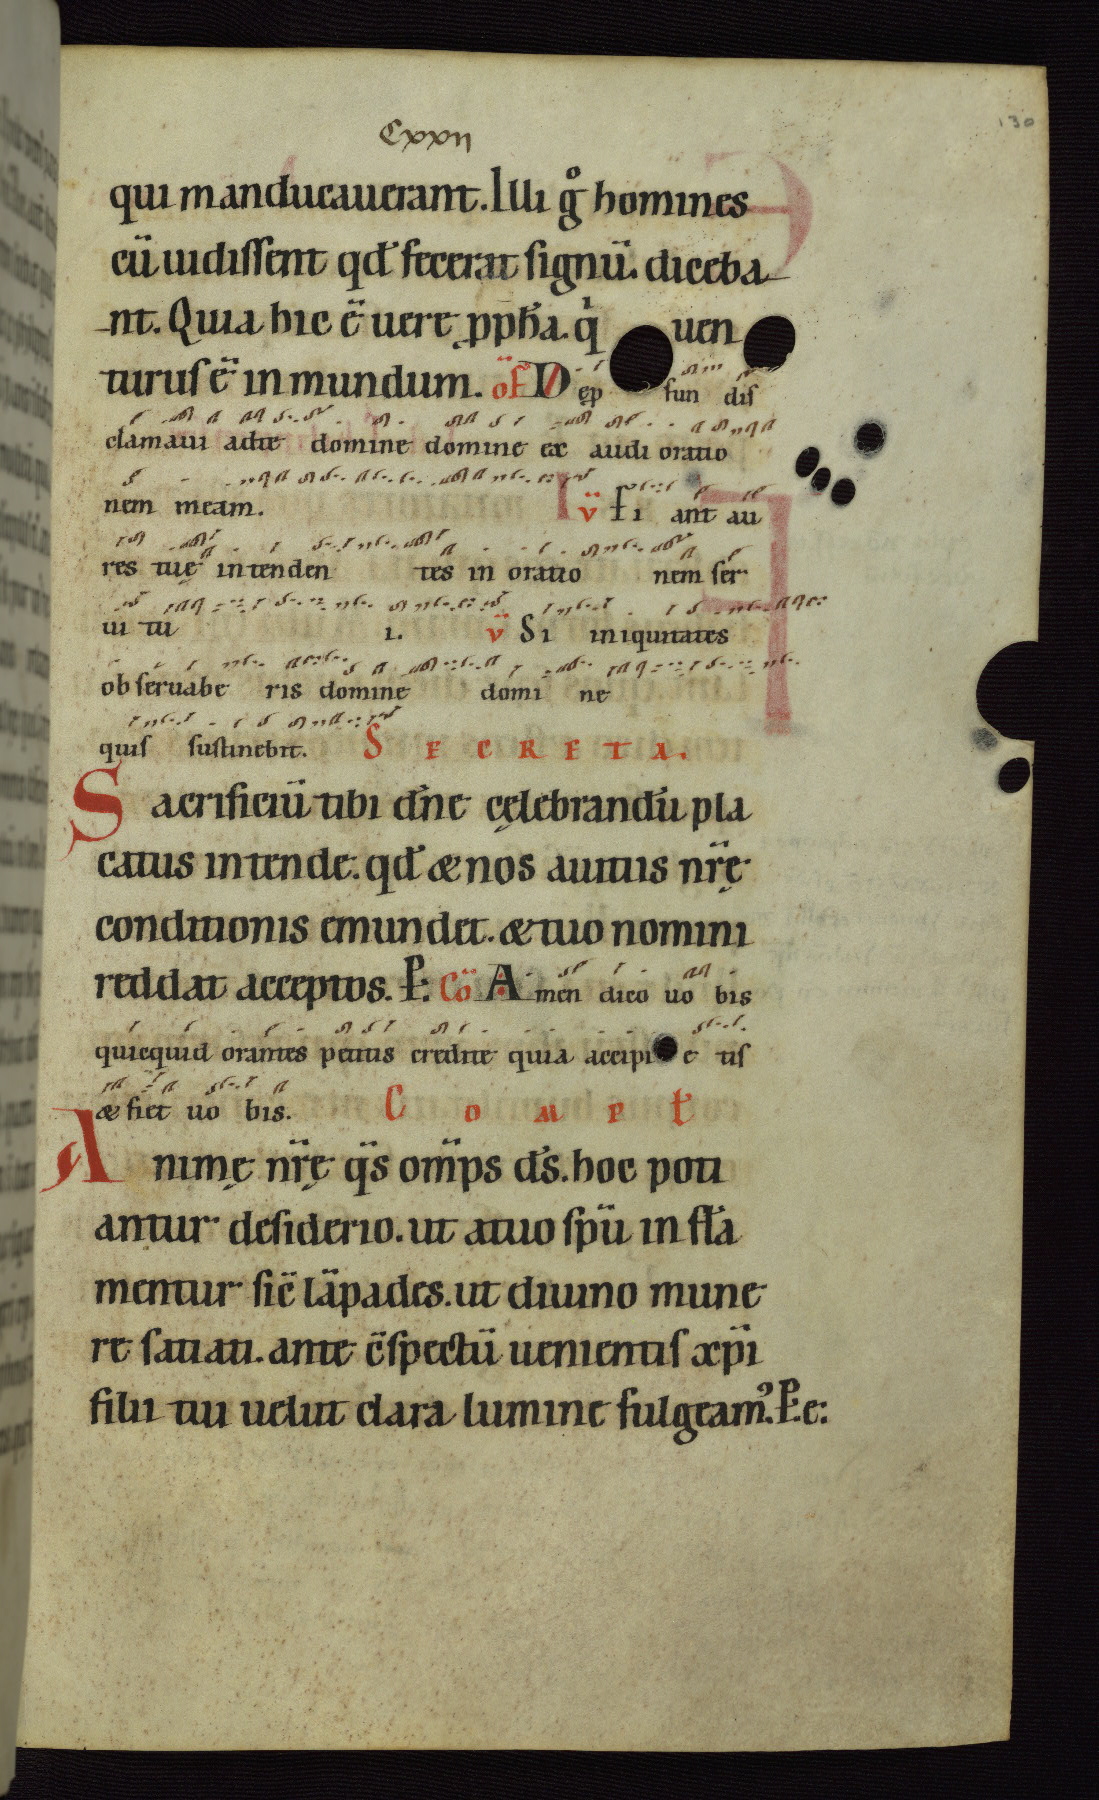 Cxxii
130
qui manducauerant. Illi gͦ homines
cū uidiſſent qđ fecerat ſignū. diceba
nt. Quia hic ē uere ꝓph̄a. qͥ uen
turuſ ē in mundum. of̄ D ep fun diſ
clamaui ad te domine domine ex audi oratio
nem meam. v̄ Fi ant au
res tuę intenden tes in oratio nem ſer
ui tu i. v̄ Si iniquitates
ob ſeruabe ris domine domi ne
quiſ ſuſtinebit. S E C R E T A.
Sacrificiū tibi dn̄e cęlebrandū pla
catus intende. qđ & nos a uitiis nr̄ę
conditionis emundet. & tuo nomini
reddat acceptos. P: Cō A men dico uo bis
quicquid orantes petitis credite quia accipi e tiſ
& fiet uo bis. C o m p ł
Animę nr̄ę q̄s om̄ps d̄s. hoc poti
antur deſiderio. ut a tuo ſpū in fla
mentur ſic̄ lāpades. ut diuino mune
re ſatiati. ante c̄ſpectū uenientiſ xp̄i
filii tui uelut clara lumine fulgeam᾽. P. e: